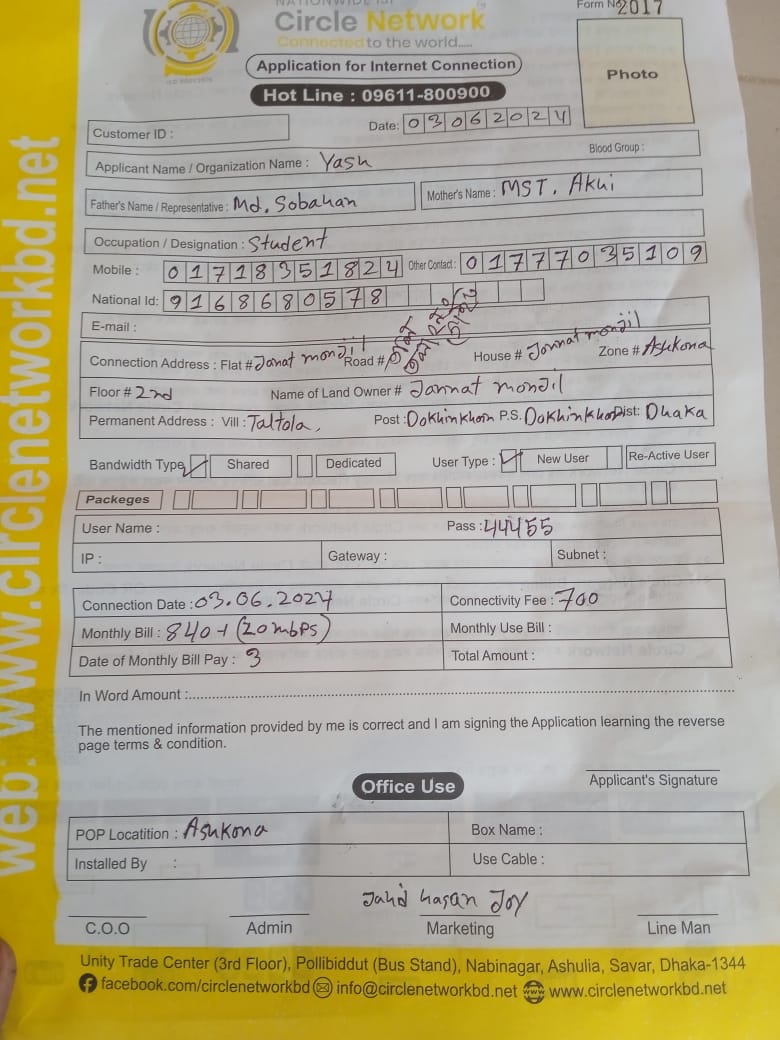 NATIONWIDE ISP
Circle Network
Connected to the world.....
Form No 2017
Application for Internet Connection
Photo
Hot Line : 09611-800900
ISO 9001:2015
Date: 03062024
Customer ID :
Blood Group :
Applicant Name / Organization Name : Yash
Father's Name / Representative : Md. Sobahan
Mother's Name : MST. Akui
Occupation / Designation : Student
Mobile : 01718351824 Other Contact : 01777035109
National Id: 9168680578
E-mail :
Connection Address : Flat # Janat monjil Road # House # Jannat monjil Zone # Ashkona
Floor # 2nd Name of Land Owner # Jannat monjil
Permanent Address : Vill : Taltola, Post : Dokhinkhan P.S. Dokhinkhan Dist: Dhaka
Bandwidth Type Shared Dedicated User Type : New User Re-Active User
Packeges
User Name : Pass : 44455
IP : Gateway : Subnet :
Connection Date : 03.06.2024 Connectivity Fee : 700
Monthly Bill : 840+ (20mbps) Monthly Use Bill :
Date of Monthly Bill Pay : 3 Total Amount :
In Word Amount :
The mentioned information provided by me is correct and I am signing the Application learning the reverse
page terms & condition.
Office Use
Applicant's Signature
POP Locatition : Ashkona Box Name :
Installed By : Use Cable :
Jahid hasan Joy
C.O.O Admin Marketing Line Man
Unity Trade Center (3rd Floor), Pollibiddut (Bus Stand), Nabinagar, Ashulia, Savar, Dhaka-1344
facebook.com/circlenetworkbd info@circlenetworkbd.net www www.circlenetworkbd.net
web: www.circlenetworkbd.net